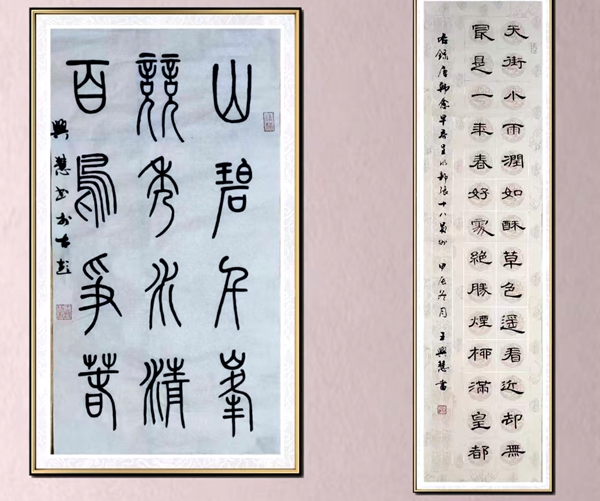 山碧千峯
競秀水清
百鳥爭春
興慧書於古彭
天街小雨潤如酥草色遙看近却無
最是一年春好處絕勝煙柳滿皇都
右錄唐韓愈早春呈水部張十八員外 甲辰 月 王興慧書